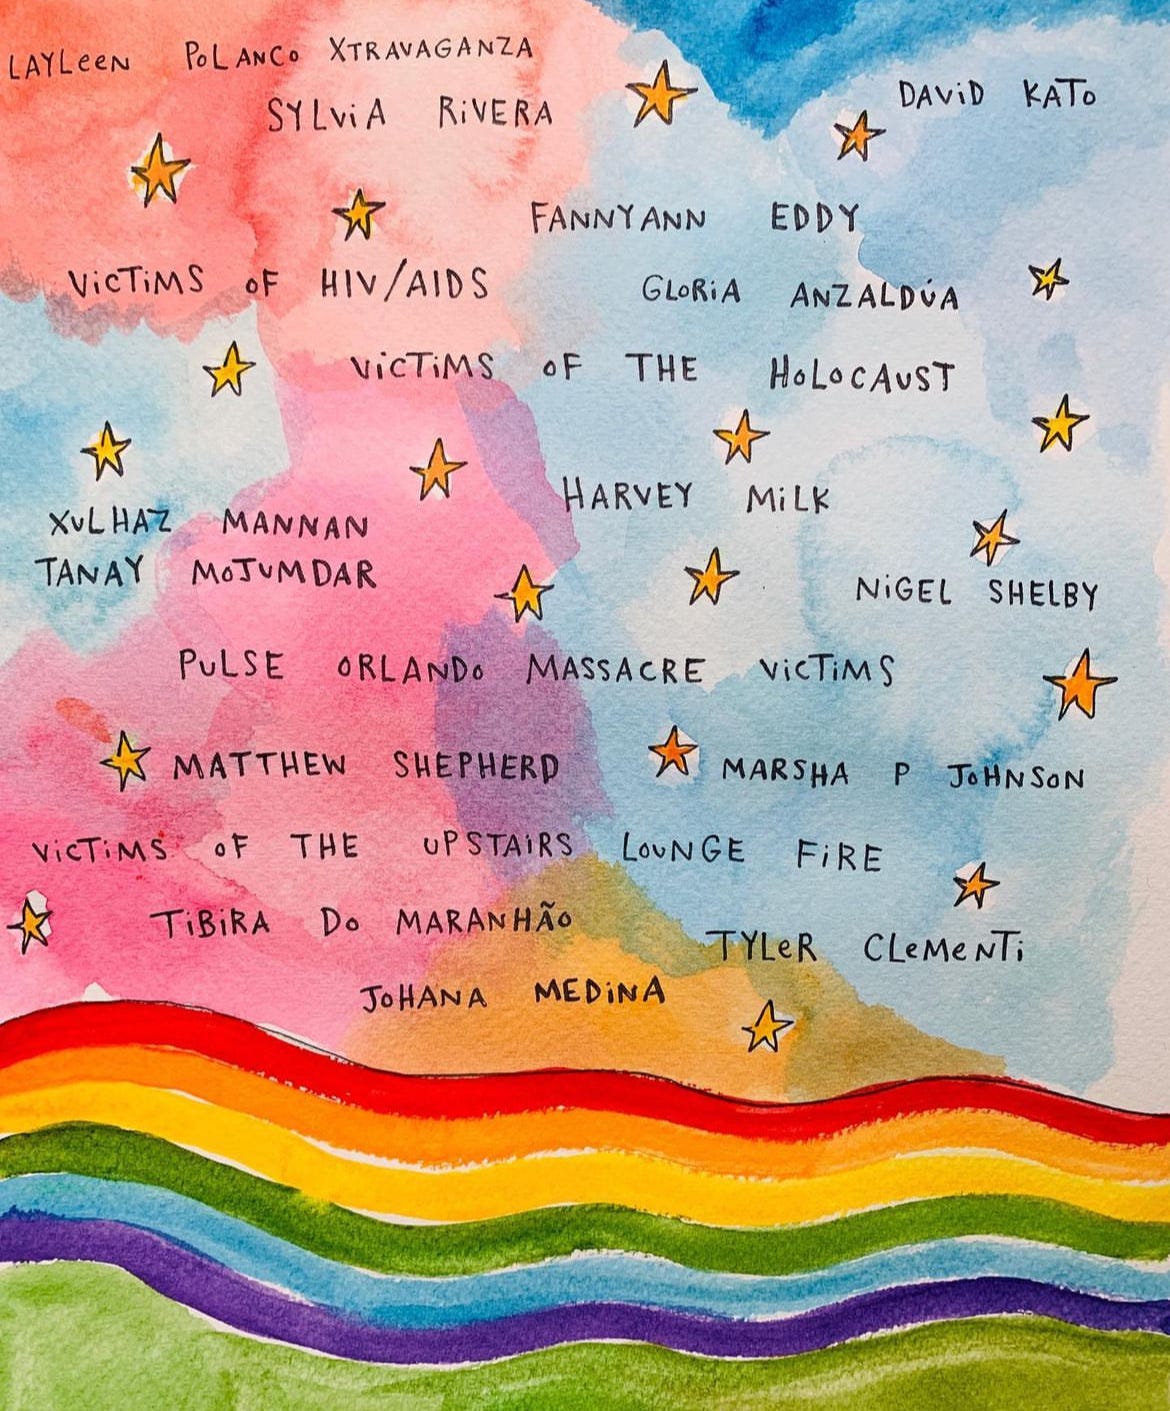 LAYLeeN PoLANCo XTRAVAGANZA
SYLViA RiVERA
DAViD KATo
FANNYANN EDDY
ViCTiMS oF HIV/AIDS
GLoRiA ANZALDÚA
ViCTiMS oF THE HoLoCAUST
HARVEY MiLK
XULHAZ MANNAN
TANAY MoJUMDAR
NiGEL SHELBY
PULSE oRLANDo MASSACRE ViCTiMS
MATTHEW SHEPHERD
MARSHA P JoHNSoN
ViCTiMS oF THE UPSTAiRS LoUNGE FiRE
TiBiRA Do MARANHÃo
TYLeR CLeMeNTi
JoHANA MEDiNA